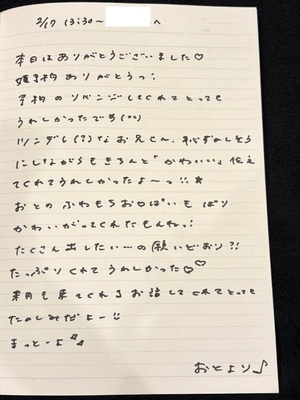 2/17 13:30〜 へ
本日はありがとうございました♡
姫予約ありがとうっ!
予約のリベンジしてくれてとっても
うれしかったです(^^)
ツンデレ(?)なお兄くん、恥ずかしそう
にしながらもきちんと「かわいい」伝え
てくれてうれしかったよ〜っ!!★
おとのふわもちお○ぱいもばり
かわいがってくれたもんねっ!
たくさん出したい…の願いどおり?!
たっぷりくれてうれしかった♡♡
来月も来てくれるお話してくれてとっても
たのしみだよー!!
まっとーよ
おとより♪